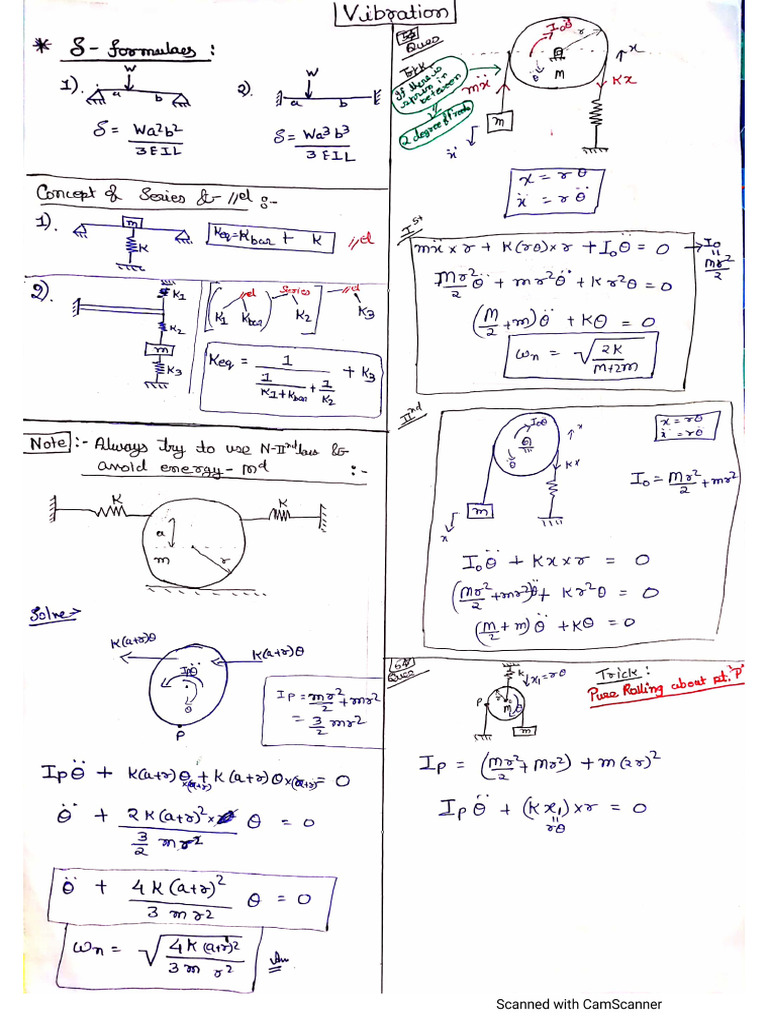 Vibration
* δ - formulaes :
1). W a b
δ = Wa²b² / 3EIL
2). W a b
δ = Wa³b³ / 3EIL
Concept of Series & //el :-
1). m K
Keq = Kbar + K //el
2) K1 K2 m K3
//el Series //el
[(K1 Kbar) K2] K3
Keq = 1 / (1/(K1+Kbar) + 1/K2) + K3
Note :- Always try to use N-IInd law &
avoid energy - md :-
K K
a
m r
Solve →
K(a+r)θ
K(a+r)θ
Ipθ̈
θ
P
IP = mr²/2 + mr²
= 3/2 mr²
Ipθ̈ + K(a+r)θ×(a+r) + K(a+r)θ×(a+r) = 0
θ̈ + 2K(a+r)² / (3/2 mr²) θ = 0
θ̈ + 4K(a+r)² / 3mr² θ = 0
ωn = √(4K(a+r)² / 3mr²) Ans
Ques
If there is
spring in
between
2 degree of freedom
I0θ̈ r
θ
M
x
mẍ
Kx
m
ẍ
x = rθ
ẍ = rθ̈
Ist
mẍ×r + K(rθ)×r + I0θ̈ = 0 → I0 = Mr²/2
Mr²/2 θ̈ + mr²θ̈ + Kr²θ = 0
(M/2 + m)θ̈ + Kθ = 0
ωn = √(2K / M+2m)
IInd
I0θ̈
θ
x
Kx
m
x
x = rθ
ẍ = rθ̈
I0 = Mr²/2 + mr²
I0θ̈ + Kx×r = 0
(Mr²/2 + mr²)θ̈ + Kr²θ = 0
(M/2 + m)θ̈ + Kθ = 0
Ques
K x1 = rθ
P M θ
m
Trick :
Pure Rolling about pt. 'P'
IP = (Mr²/2 + Mr²) + m(2r)²
IPθ̈ + (Kx1)×r = 0
rθ
Scanned with CamScanner